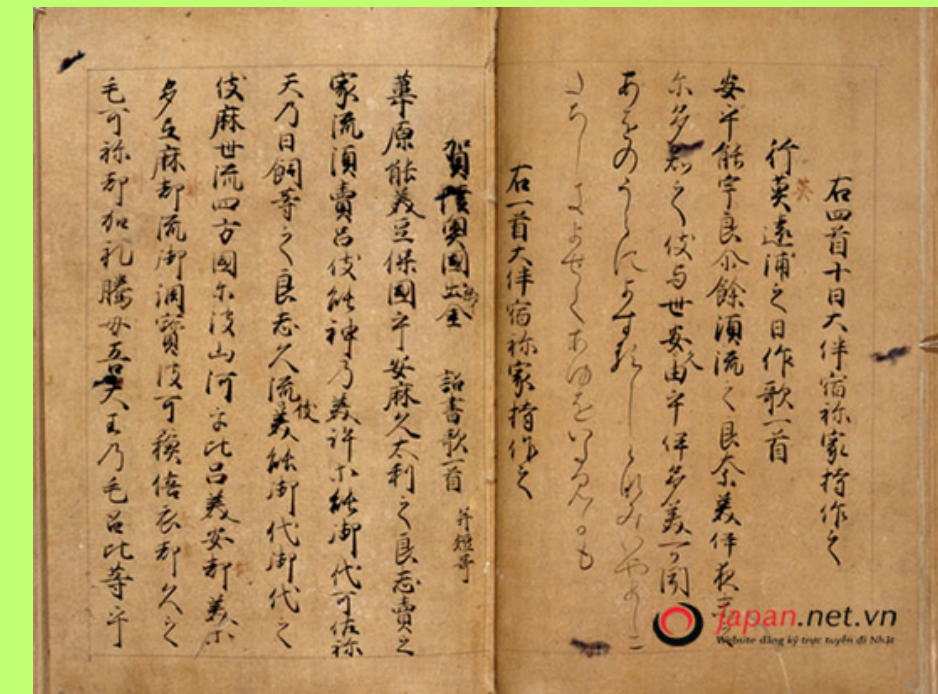 右四首十日大伴宿祢家持作之
行英遠浦之日作歌一首
英
安乎能宇良尓餘須流之良奈美伊夜末之
尓多知之伎与世久安由乎伊多美可聞
あをのうらによするしらなみいやましに
たちしきよせくあゆをいたみかも
右一首大伴宿祢家持作之
賀陸奥國出金詔書歌一首 并短哥
葦原能美豆保國乎安麻久太利之良志賣之
家流須賣呂伎能神乃美許等能御代可佐祢
天乃日嗣等之良志久流伎美能御代御代之
伎麻世流四方國尓波山河乎比呂美安都美等
多弖麻都流御調寶波可蘓倍衣都久之
毛可祢都加礼騰母吾大王乃毛呂比等乎
japan.net.vn
Website đăng ký trực tuyến đi Nhật